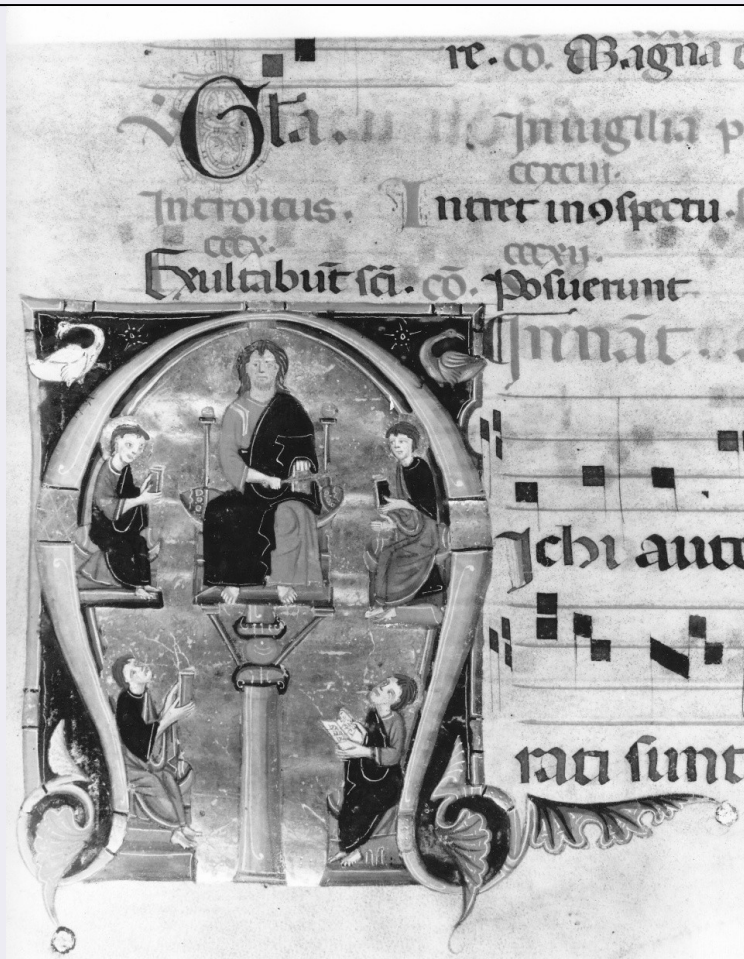 re. cō. Magna
Gl̄a. In uigilia p
ccxciii.
Introitus. Intret in ꝯspectu.
cccx. cccxii.
Exultabūt sc̄i. cō. Posuerunt
In nāt
Michi aute
rati sunt